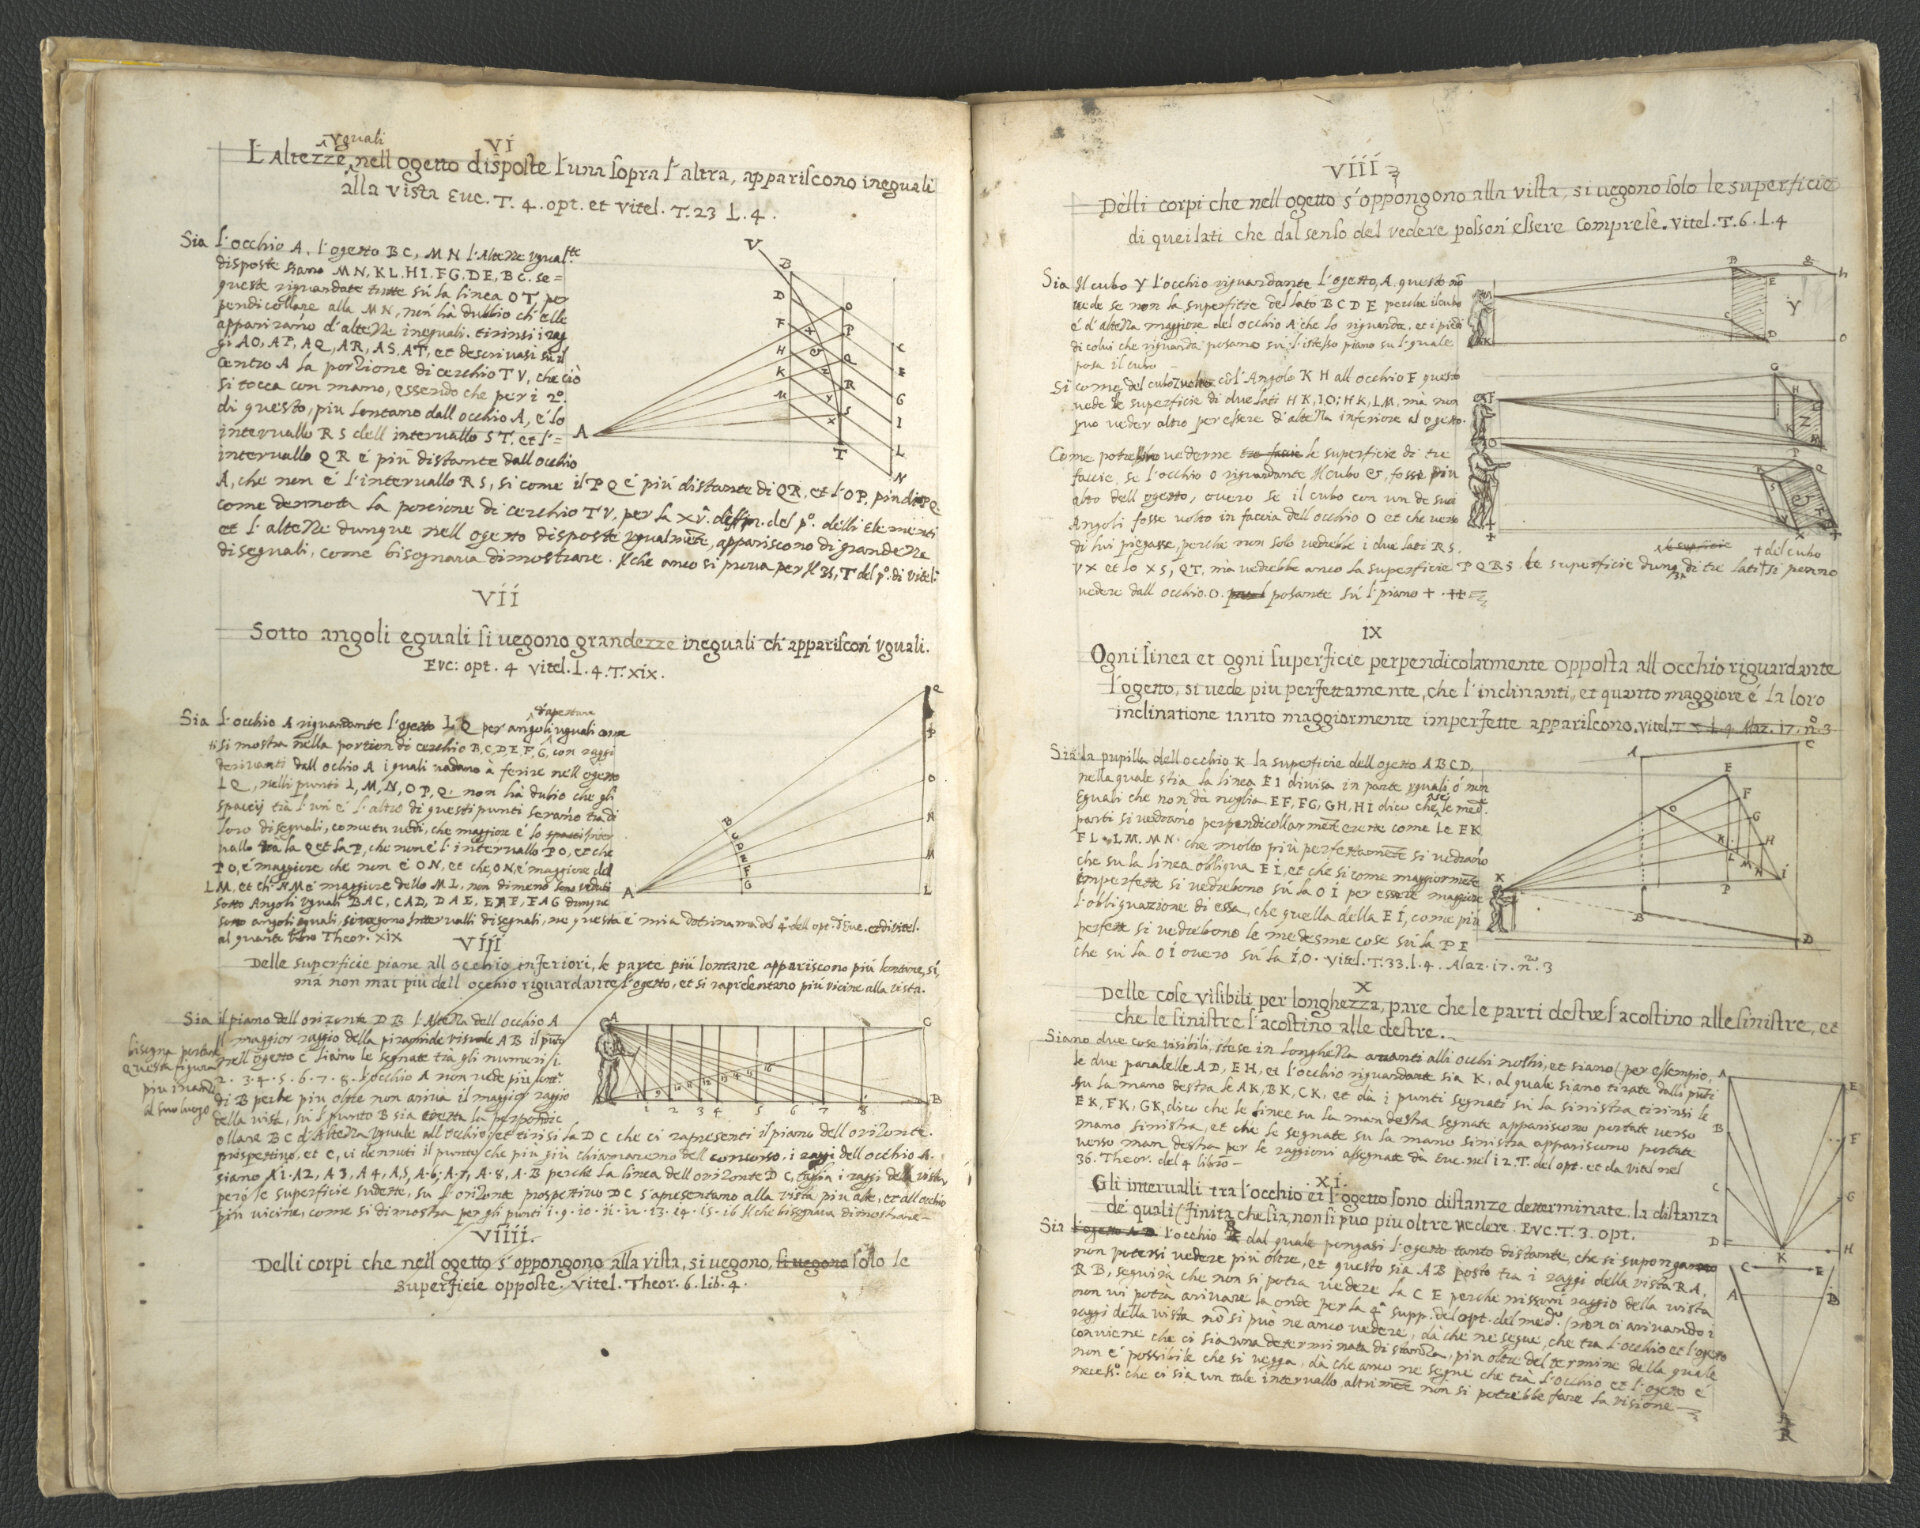 VI
L'Altezze uguali nell ogetto disposte l'una sopra l'altra, appariscono ineguali
alla vista Euc. T. 4. opt. et vitel. T. 23 L. 4.
Sia l'occhio A, l'ogetto BC, MN l'Altezze ugual.te
disposte siano MN, KL, HI, FG, DE, BC. se=
queste riguardate tutte sú la linea OT, per
pendicollare alla MN, non há dubbio ch'elle
appariranno d'altezze ineguali. tirinsi i rag
gi AO, AP, AQ, AR, AS, AT, et descrivasi su il
centro A la portione di cerchio TV, che ció
si tocca con mano, essendo che per i 2º.
di questo, piu lontano dall occhio A, é lo
intervallo RS dell intervallo ST. et l'=
intervallo QR é più distante dall occhio
A, che non é l'intervallo RS, si come il PQ é più distante di QR, et l'OP, piu di PQ
come denota la porcione di cerchio TV, per la XV. deffin. del pº. delli Elementi
et l'altezze dunque nell ogetto disposte ugualmẽte, appariscono di grandezze
diseguali, come bisognava dimostrare. Il che anco si prova per il 35, T del pº. di vitel.
VII
Sotto angoli eguali si vegono grandezze ineguali ch'appariscon' uguali.
Euc: opt. 4 vitel. L. 4. T. XIX.
d'apertura
Sia l'occhio A riguardante l'ogetto LQ per angoli uguali come
si mostra nella portion di cerchio B, C, D, E, F, G, con raggi
derivanti dall ochio A i quali vadano à ferire nell ogetto
LQ, nelli punti L, M, N, O, P, Q. non há dubio che gli
spacij trà l'un e l'altro di questi punti seranno tra di
loro diseguali, come tu vedi, che maggiore é lo spacii inter
vallo tra la Q et la P, che non é l'intervallo PO, et che
PO, é maggiore che non é ON, et che, ON, é maggiore del
LM, et ch' NM é maggiore dello ML, non dimeno sono veduti
sotto Angoli uguali BAC, CAD, DAE, EAF, FAG dunque
sotto angoli eguali, si vegono intervalli disegnali, ne questa é mia dotrina ma del 4º dell opt. d'Euc. et di vitel.
al quarto libro Theor. XIX
VIII
Delle superficie piane all occhio inferiori, le parte più lontane appariscono più lontane, sí,
má non mai più dell occhio riguardante l'ogetto, et si rapresentano più vicine alla vista.
Sia il piano dell orizonte DB l'Altezza dell occhio A
Il maggior raggio della piramide visuale AB il pũto
nell ogetto C siano le segnate trà gli numeri 1.
2. 3. 4. 5. 6. 7. 8. l'occhio A non vede più lont.
di B perche piu oltre non ariva il maggior raggio
della vista, sú l punto B sia eretta la perpendic
ollare BC d'Altezza uguale all occhio, et tirisi la DC che ci rapresenti il piano dell orizonte.
prospettivo, et C, vi denoti il punto che più giù chiamaremo dell concorso. i raggi dell occhio A.
siano A1. A2, A3, A4, A5, A.6, A.7, A.8, A.B perche la linea dell orizonte DC, taglia i raggi della vista,
peró le superficie sudette, su l'orizonte prospettivo DC s'apresentano alla vista più alte, et all occhio
più vicine, come si dimostra per gli punti 1. 9. 10. 11. 12. 13. 14. 15. 16 Il che bisognava dimostrare—
bisogna portare
questa figura
piu inanti
al suo luogo
VIIII.
Delli corpi che nell ogetto s'oppongono alla vista, si vegono, si vegono sollo le
superficie opposte. vitel. Theor. 6. lib. 4.
VIII
Delli corpi che nell ogetto s'oppongono alla vista, si vegono solo le superficie
di quei lati che dal senso del vedere posson' essere comprese. vitel. T. 6. L. 4
Sia Il cubo Y l'occhio riguardante l'ogetto, A, questo nõ
vede se non la superfitie del lato BCDE perche il cubo
é d'altezza maggiore del occhio A che lo riguarda, et i piedi
di colui che riguarda posano sù l'istesso piano su l quale
posa il cubo
Si come del cubo Z volto cõ l'Angolo KH all occhio F questo
vede le superficie di due lati HK, IO; HK, LM, mà non
puo veder altro per essere d'altezza inferiore al ogetto.
Come potrebbe vederne tre facie le superficie di tre
faccie, se l'occhio O riguardante Il cubo &, fosse più
alto dell ogetto, overo se il cubo con un de suoi
Angoli fosse volto in faccia dell occhio O et che verso
di lui piegasse, perche non solo vedrebbe i due lati RS,
VX et lo XS, QT, ma vedrebbe anco la superficie PQRS. le superficie dunq di tre lati + si penno
le supficie + del cubo
vedere dall occhio. O. posante sú l piano +. ++
IX
Ogni linea et ogni superficie perpendicolarmente opposta all occhio riguardante
l'ogetto, si vede piu perfettamente, che l'inclinanti, et quanto maggiore é la loro
inclinatione tanto maggiormente imperfette appariscono. vitel. T X L. 4 Alaz. 17. nº. 3
Sia la pupilla dell occhio K la superficie dell ogetto ABCD,
nella quale stia la linea EI divisa in parte uguali ó non
eguali che non dà noglia EF, FG, GH, HI dico che se le med.
parti si vedranno perpendicollarmẽte erette come le EK
FL. LM. MN. che molto più perfettamẽte si vedranno
che su la linea obliqua EI, et che si come maggiormẽte
imperfette si vedrebono sú la OI per essere maggiore
l'obliquazione di essa, che quella della EI, come più
perfette si vedrebono le medesme cose sú la PE
che sú la OI overo sú la I, O. vitel. T. 33. L. 4. Alaz. 17. nº. 3
X
Delle cose visibili per longhezza, pare che le parti destre s'acostino alle sinistre, et
che le sinistre s'acostino alle destre.
Siano due cose visibili, stese in longhezza avanti alli occhi nostri, et siano (per essempio,
le due paralelle AD, EH, et l'occhio riguardante sia K, al quale siano tirate dalli pũti
su la mano destra le AK, BK, CK, et dà i punti segnati sú la sinistra tirinsi le
EK, FK, GK, dico che le linee su la man destra segnate appariscono portate verso
mano sinistra, et che le segnate su la mano sinistra appariscono portate
verso man destra per le raggioni assegnate dà Euc. nel 12. T. del opt. et da vitel nel
36. Theor. del 4 libro—
XI.
Gli intervalli tra l'occhio et l'ogetto sono distanze determinate. la distanza
de' quali (finita che sia, non si puo piu oltre vedere. EVC. T. 3. opt.
Sia l'ogetto AB l'occhio R dal quale pongasi l'ogetto tanto distante, che si supongano
non potersi vedere più oltre, et questo sia AB posto tra i raggi della vista RA,
RB, seguirà che non si potra vedere la CE perche nissun raggio della vista
non vi potrà arivare la onde per la 4ª supp. del opt. del med.º (non ci arivando i
raggi della vista nõ si puó ne anco vedere, dà che ne segue, che tra l'occhio et l'ogetto
conviene che ci sia una determinata distanza, piu oltre del termine della quale
non é possibile che si vegga, dà che anco ne segue che trà l'occhio et l'ogetto é
necess.º che ci sia un tale intervallo, altrimẽte non si potrebbe fare la visione—